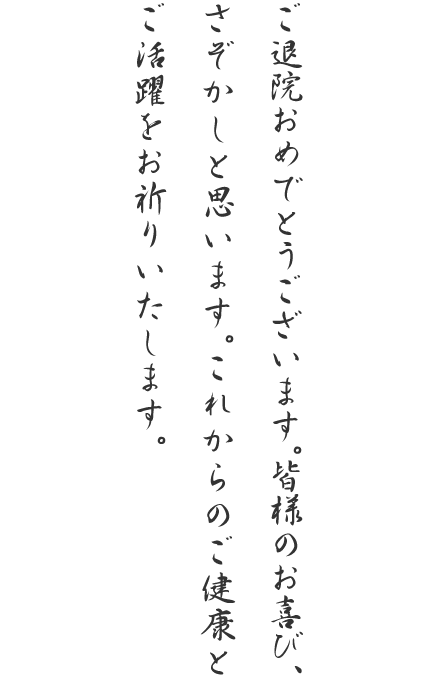 ご退院おめでとうございます。皆様のお喜び、
さぞかしと思います。これからのご健康と
ご活躍をお祈りいたします。